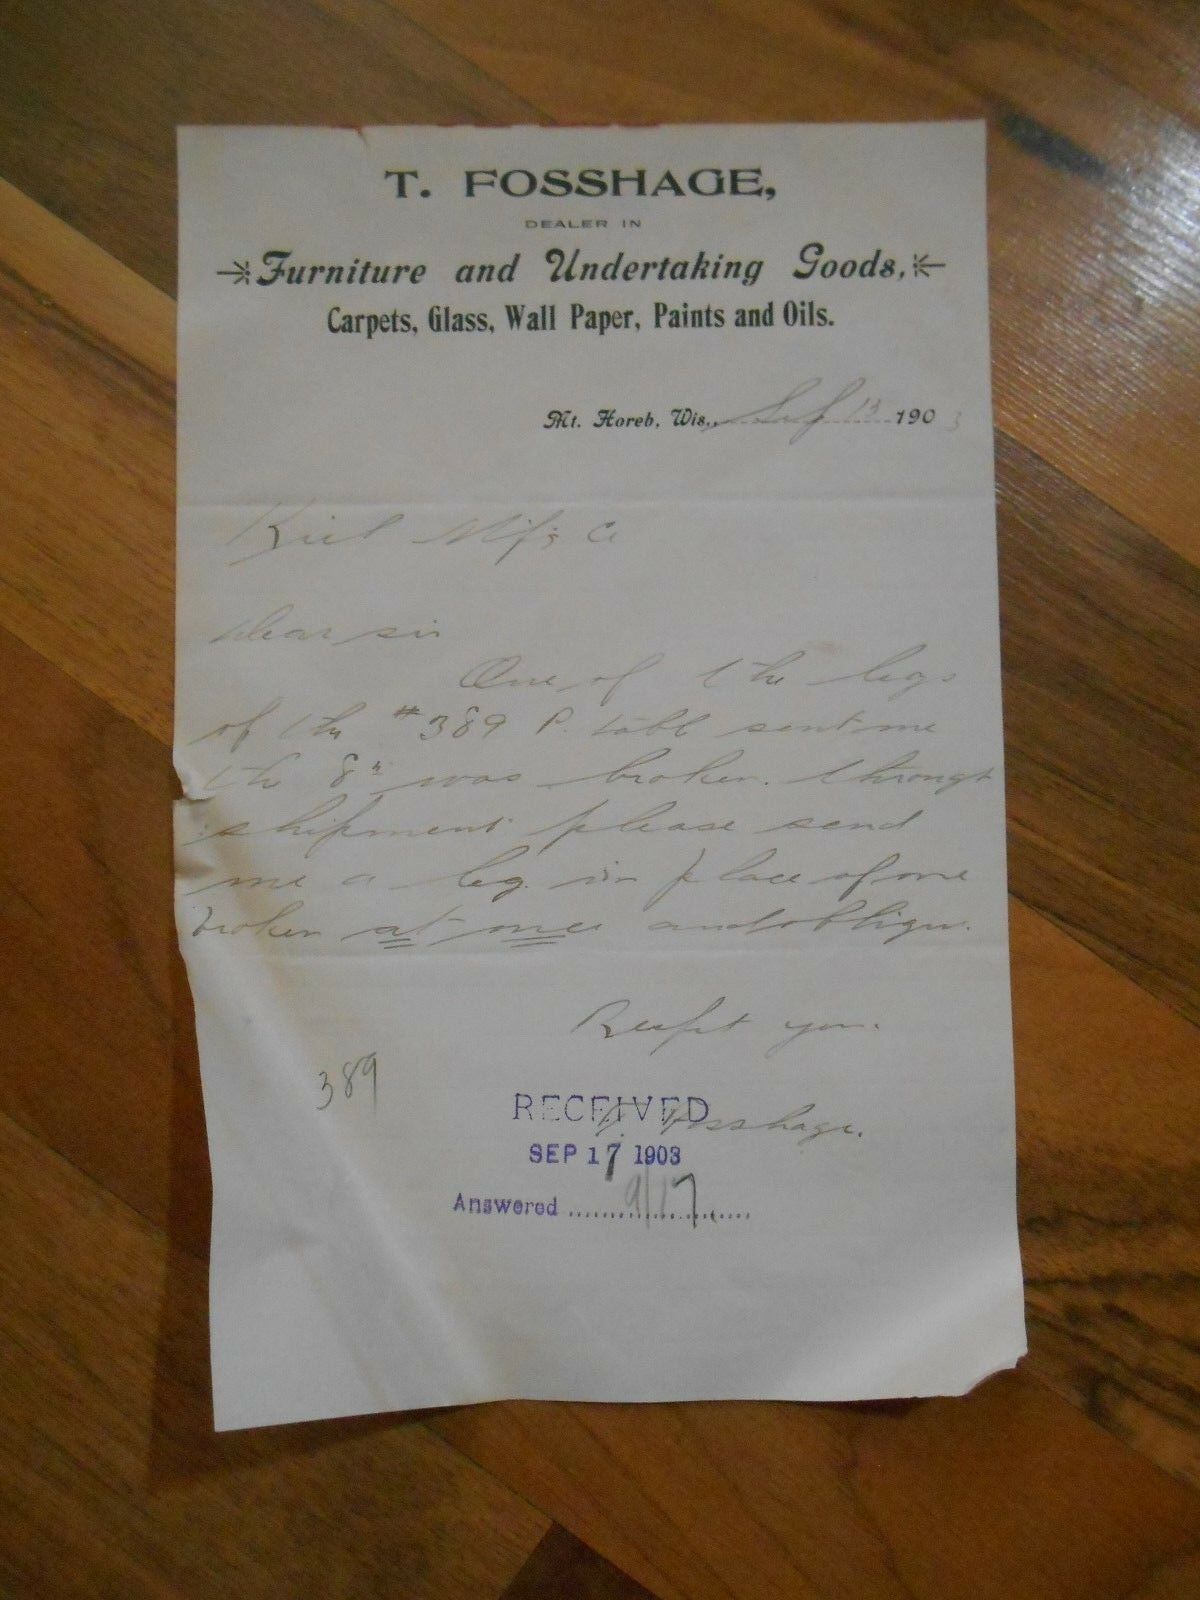 T. FOSSHAGE,
DEALER IN
Furniture and Undertaking Goods,
Carpets, Glass, Wall Paper, Paints and Oils.
Mt. Horeb, Wis., Sep 13 1903
Kiel Mfg Co
Dear sir
One of the legs
of the #389 P. table sent me
the 8" was broken. through
shipment please send
me a leg. in place of one
broken at once and oblige.
Respt your.
T. Fosshage.
389
RECEIVED
SEP 17 1903
Answered 9/17